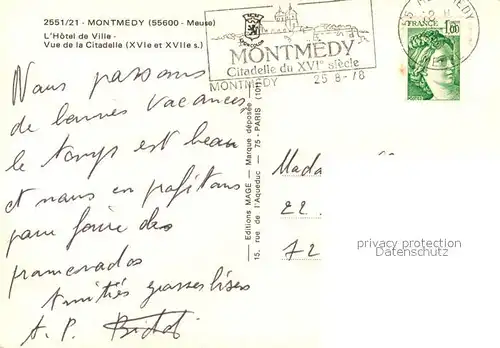 2551/21 - MONTMEDY (55600 - Meuse)
L'Hôtel de Ville -
Vue de la Citadelle (XVIe et XVIIe s.)
MONTMEDY
Citadelle du XVIe siècle
MONTMEDY 25-8-78
FRANCE
1,00
POSTES
Nous passons
de bonnes vacances,
le temps est beau
et nous en profitons
pour faire des
promenades
Amitiés
A. P.
Editions MAGE — Marque déposée
15, rue de l'Aqueduc — 75 - PARIS (10e)
Mada
22
72
privacy protection
Datenschutz